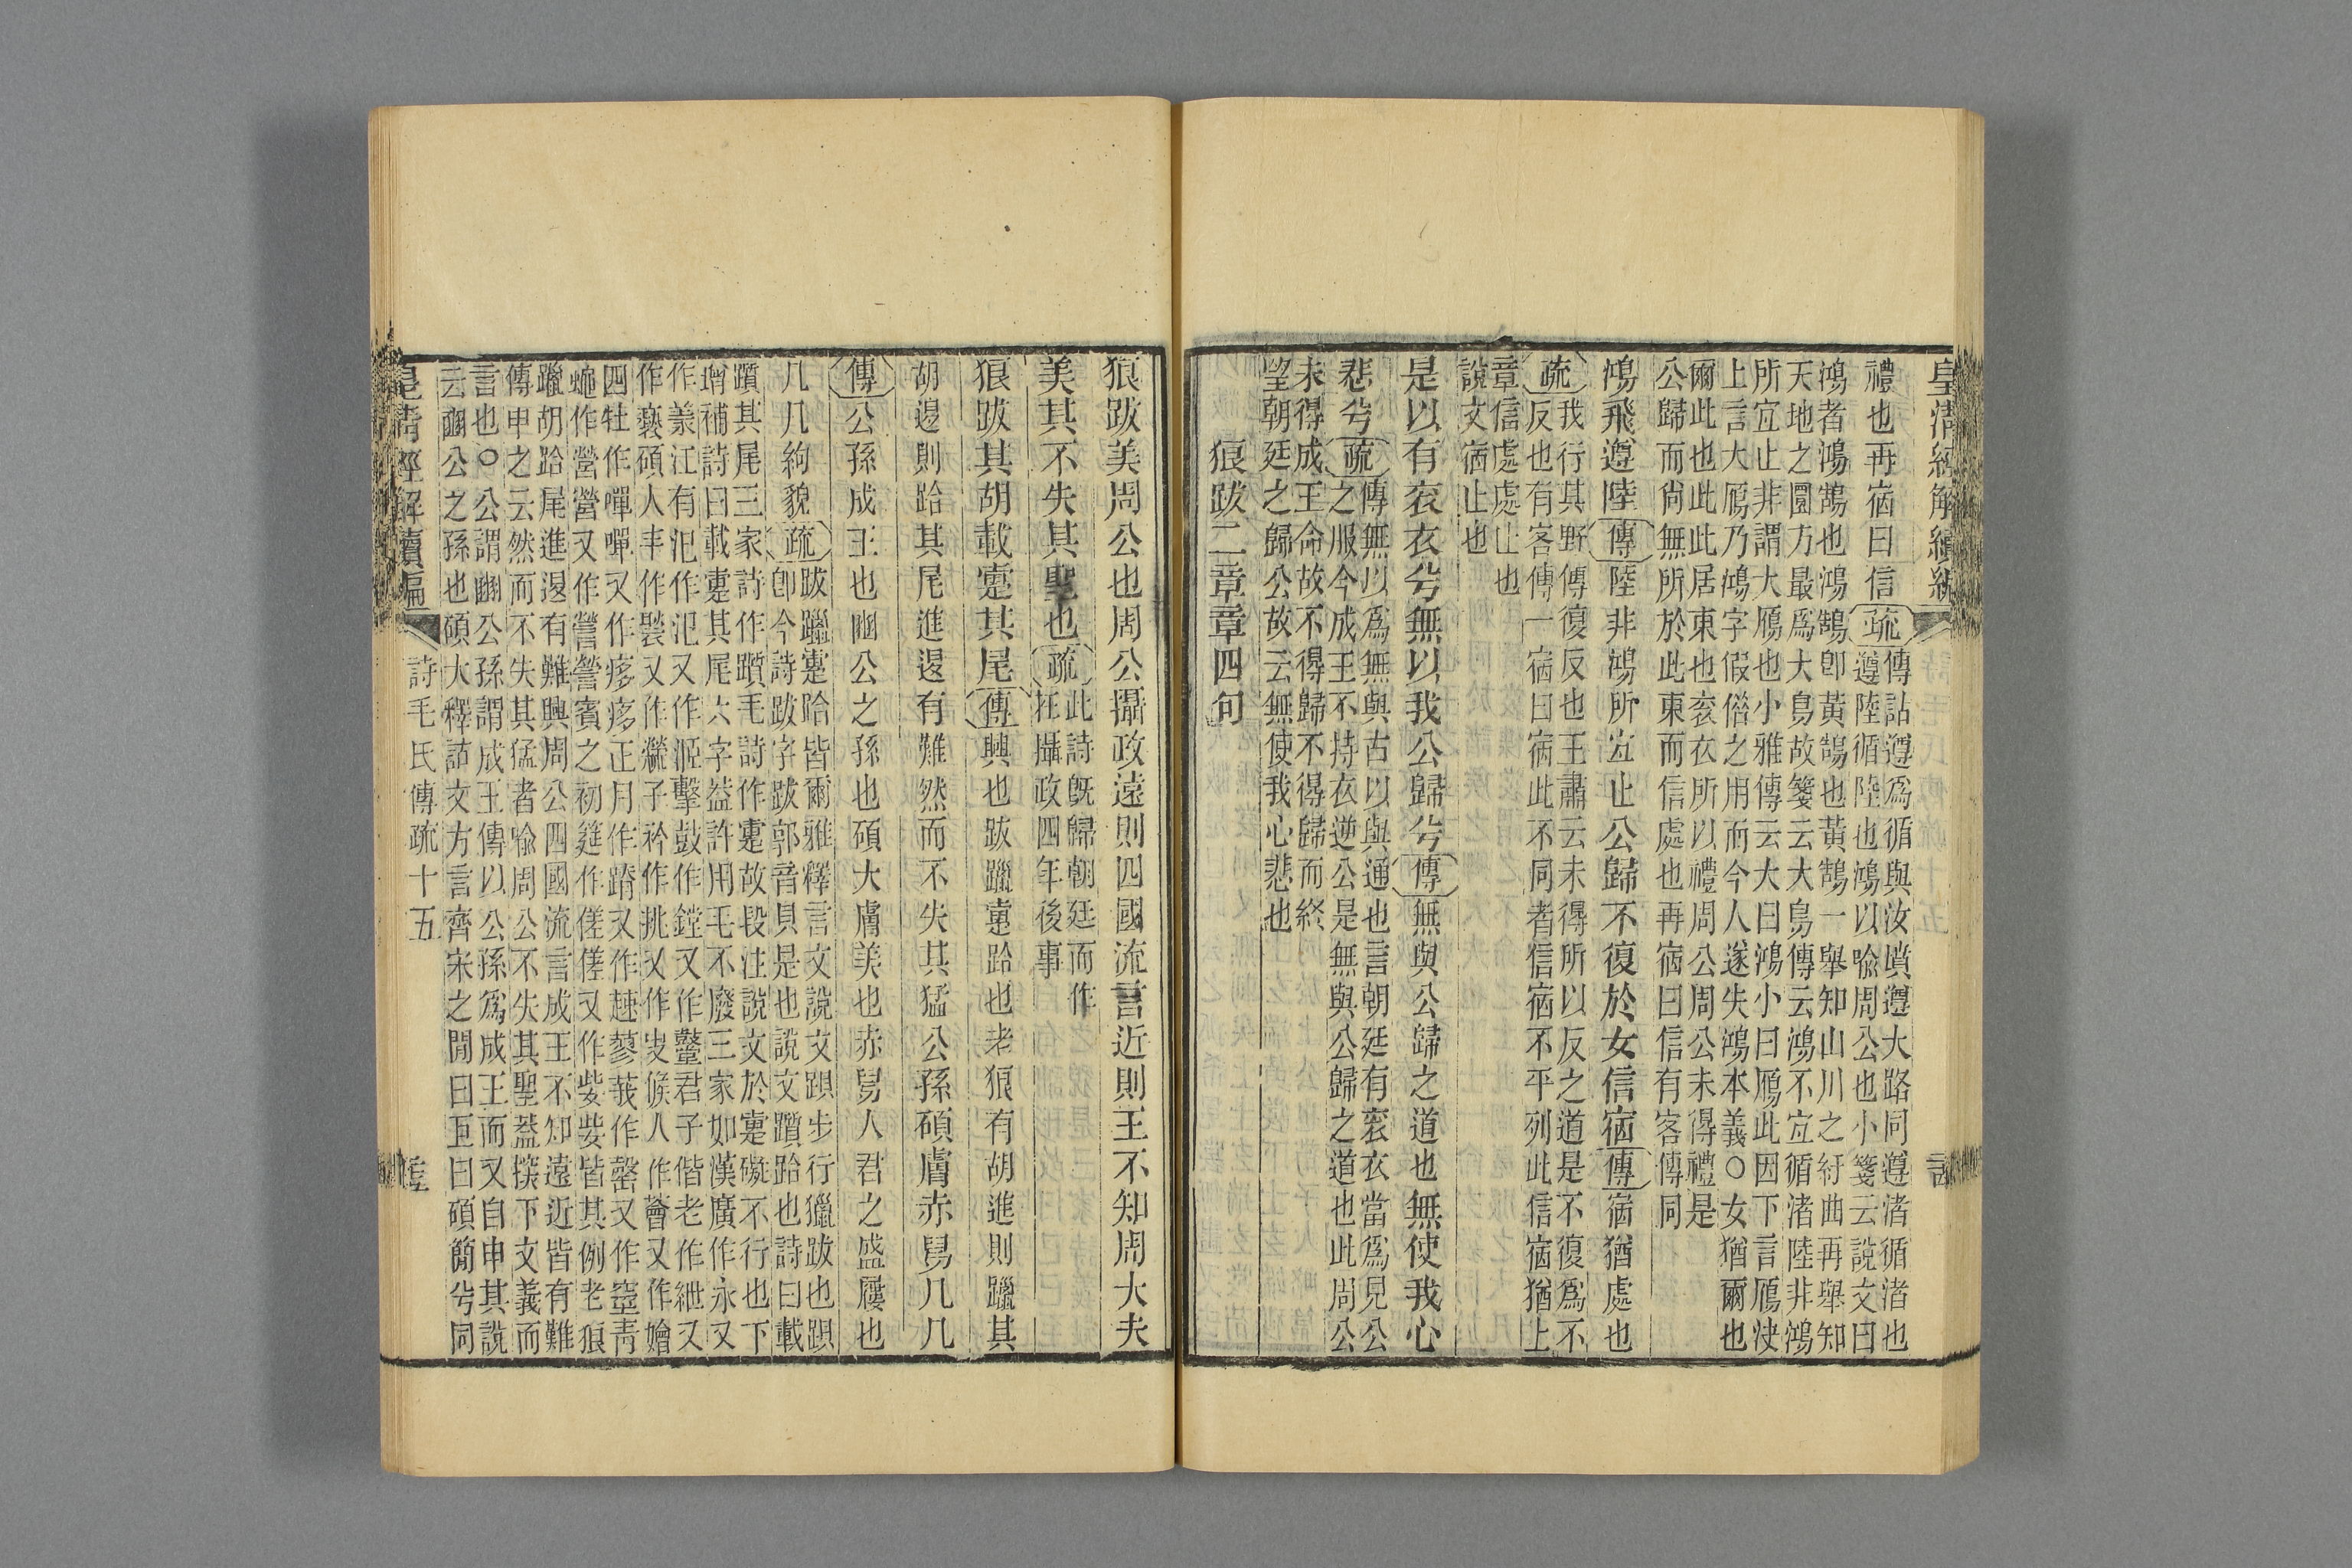 皇清經解續編
禮也再宿曰信疏
傳詁遵爲循與汝墳遵大路同遵渚循渚也
遵陸循陸也鴻以喩周公也小箋云說文曰
鴻者鴻鵠也鴻鵠卽黃鵠也黃鵠一舉知山川之紆曲再舉知
天地之圜方最爲大鳥故箋云大鳥傳云鴻不宜循渚陸非鴻
所宜止非謂大鴈也小雅傳云大曰鴻小曰鴈此因下言鴈決
上言大鴈乃鴻字假偺之用而今人遂失鴻本義○女猶爾也
爾此也此此居東也衮衣所以禮周公周公未得禮是
公歸而尙無所於此東而信處也再宿曰信有客傳同
鴻飛遵陸傳陸非鴻所宜止公歸不復於女信宿傳宿猶處也
疏
我行其野傳復反也王肅云未得所以反之道是不復爲不
反也有客傳一宿曰宿此不同者信宿不平列此信宿猶上
章信處處止也
說文宿止也
是以有衮衣兮無以我公歸兮傳無與公歸之道也無使我心
悲兮疏
傳無以爲無與古以與通也言朝廷有衮衣當爲見公
之服今成王不持衣逆公是無與公歸之道也此周公
未得成王命故不得歸不得歸而終
望朝廷之歸公故云無使我心悲也
狼跋二章章四句
狼跋美周公也周公攝政遠則四國流言近則王不知周大夫
美其不失其聖也疏
此詩旣歸朝廷而作
在攝政四年後事
狼跋其胡載疐其尾傳興也跋躐疐跲也老狼有胡進則躐其
胡退則跲其尾進退有難然而不失其猛公孫碩膚赤舄几几
傳公孫成王也豳公之孫也碩大膚美也赤舄人君之盛屨也
几几絇貌疏
跋躐疐跲皆爾雅釋言文說文跟步行獵跋也跟
卽今詩跋字跋郭音貝是也說文躓跲也詩曰載
躓其尾三家詩作躓毛詩作疐故段注說文於疐礙不行也下
增補詩曰載疐其尾六字益許用毛不廢三家如漢廣作永又
作羕江有汜作汜又作洍擊鼓作鏜又作鼞君子偕老作紲又
作褻碩人丰作褧又作䌹子衿作挑又作㕞候人作薈又作嬒
四牡作嘽嘽又作痑痑正月作蹐又作趚蓼莪作罄又作窒靑
蠅作營營又作營營賓之初筵作傞傞又作姕姕皆其例老狼
躐胡跲尾進退有難興周公四國流言成王不知遠近皆有難
傳申之云然而不失其猛者喩周公不失其聖葢探下文義而
言也○公謂豳公孫謂成王傳以公孫爲成王而又自申其說
云豳公之孫也碩大釋詁文方言齊宋之閒曰巨曰碩簡兮同
皇淸經解續編
詩毛氏傳疏十五